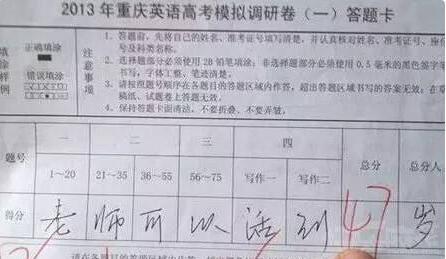 2013年重庆英语高考模拟调研卷（一）答题卡
正确填涂
错误填涂
注意事项
1. 答题前，先将自己的姓名、准考证号填写清楚，并认真核对姓名、准考证号、座
号及科类名称。
2. 选择题部分必须使用2B铅笔填涂；非选择题部分必须使用0.5毫米的黑色签字笔
书写，字体工整，笔迹清楚。
3. 请按照题号顺序在各题目的答题区域内作答，超出答题区域书写的答案无效；在草
稿纸、试题卷上答题无效。
4. 保持答题卡面清洁，不要折叠、不要弄皱。
题号 一 二 三 四 总分 总分人
1~20 21~35 36~55 56~75 写作一 写作二
得分 老 师 可 以 活 到 47 岁
请在各题目的答题区域内作答